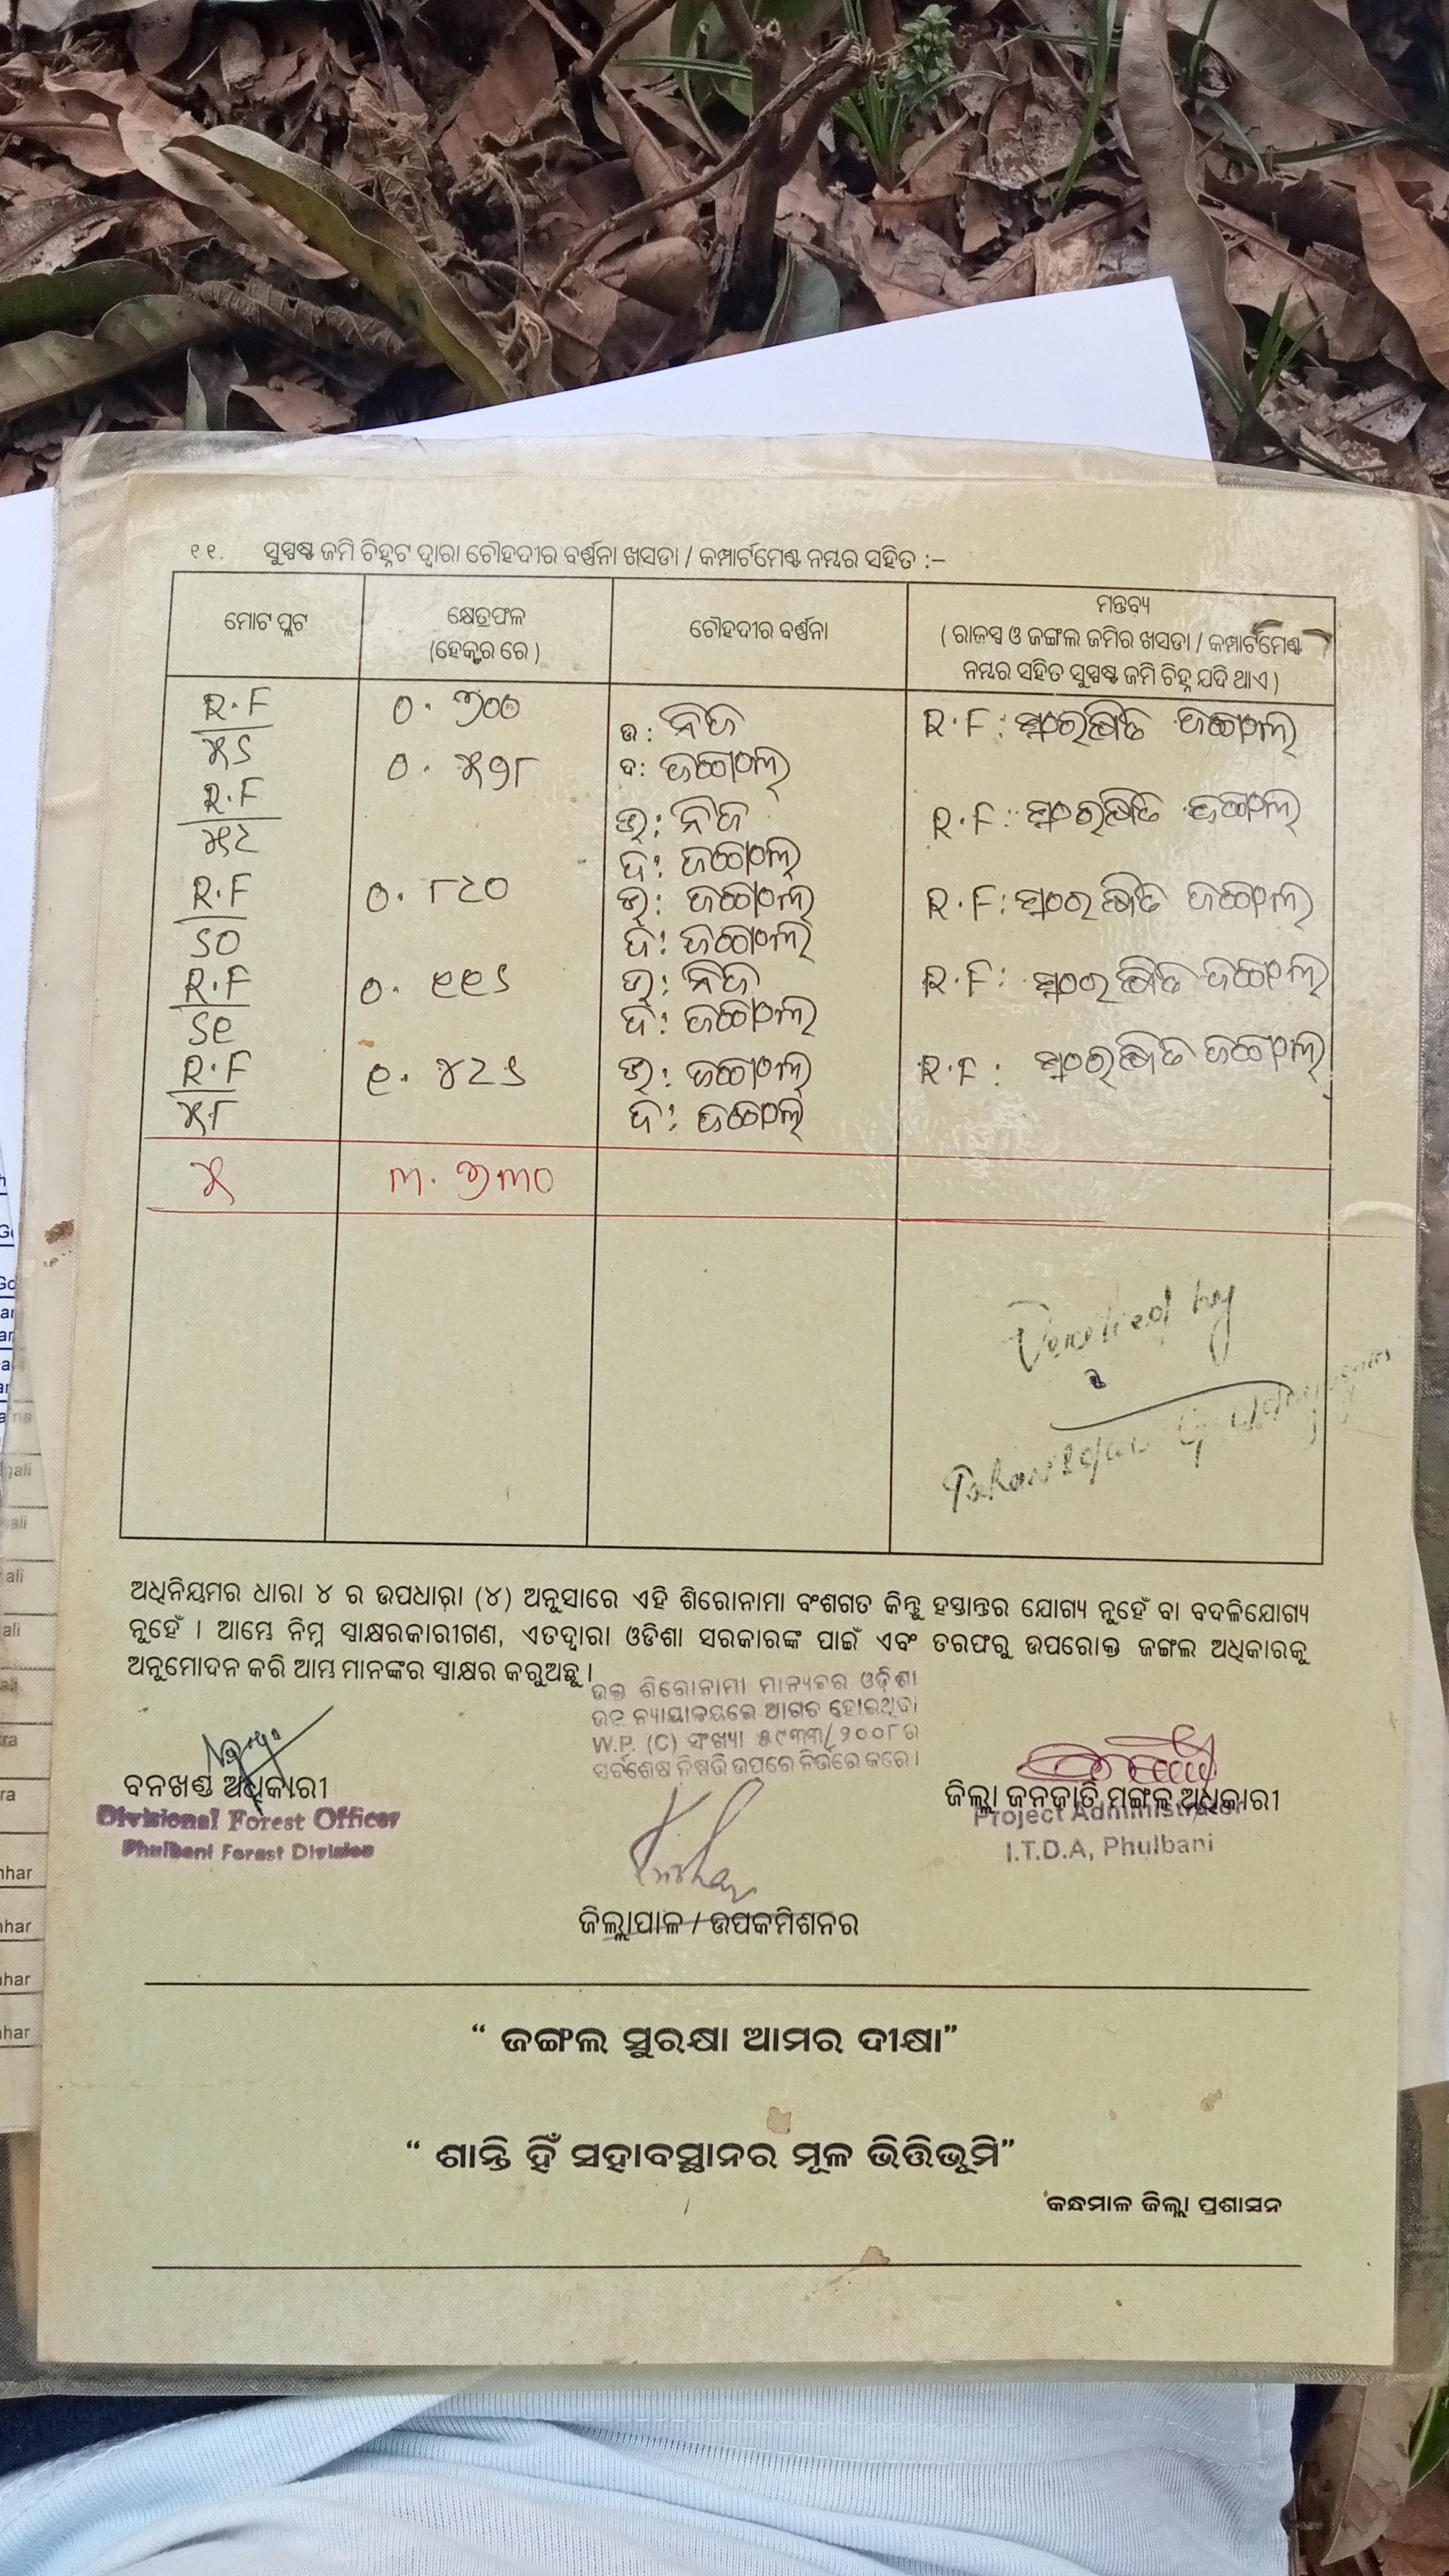 ୧୧. ସୁସ୍ପଷ୍ଟ ଜମି ଚିହ୍ନଟ ଦ୍ୱାରା ଚୌହଦୀର ବର୍ଣ୍ଣନା ଖସଡା / କମ୍ପାର୍ଟମେଣ୍ଟ ନମ୍ବର ସହିତ :–
ମୋଟ ପ୍ଲଟ
କ୍ଷେତ୍ରଫଳ
(ହେକ୍ଟର ରେ)
ଚୌହଦୀର ବର୍ଣ୍ଣନା
ମନ୍ତବ୍ୟ
( ରାଜସ୍ୱ ଓ ଜଙ୍ଗଲ ଜମିର ଖସଡା / କମ୍ପାର୍ଟମେଣ୍ଟ
ନମ୍ବର ସହିତ ସୁସ୍ପଷ୍ଟ ଜମି ଚିହ୍ନ ଯଦି ଥାଏ )
R.F ୦. ୬୦୦ ଉ: ନିଜ R.F: ସଂରକ୍ଷିତ ଜଙ୍ଗଲ
୫୨ ୦. ୫୭୮ ଦ: ଜଙ୍ଗଲ
R.F ଉ: ନିଜ R.F: ସଂରକ୍ଷିତ ଜଙ୍ଗଲ
ଦ: ଜଙ୍ଗଲ
R.F ୦. ୮୨୦ ଉ: ଜଙ୍ଗଲ R.F: ସଂରକ୍ଷିତ ଜଙ୍ଗଲ
ଦ: ଜଙ୍ଗଲ
R.F ଉ: ନିଜ R.F: ସଂରକ୍ଷିତ ଜଙ୍ଗଲ
ଦ: ଜଙ୍ଗଲ
R.F ଉ: ଜଙ୍ଗଲ R.F: ସଂରକ୍ଷିତ ଜଙ୍ଗଲ
୫୮ ଦ: ଜଙ୍ଗଲ
୫ ୩. ୬୩୦
ଅଧିନିୟମର ଧାରା ୪ ର ଉପଧାରା (୪) ଅନୁସାରେ ଏହି ଶିରୋନାମା ବଂଶଗତ କିନ୍ତୁ ହସ୍ତାନ୍ତର ଯୋଗ୍ୟ ନୁହେଁ ବା ବଦଳିଯୋଗ୍ୟ
ନୁହେଁ । ଆମ୍ଭେ ନିମ୍ନ ସ୍ୱାକ୍ଷରକାରୀଗଣ, ଏତଦ୍ୱାରା ଓଡିଶା ସରକାରଙ୍କ ପାଇଁ ଏବଂ ତରଫରୁ ଉପରୋକ୍ତ ଜଙ୍ଗଲ ଅଧିକାରକୁ
ଅନୁମୋଦନ କରି ଆମ୍ଭ ମାନଙ୍କର ସ୍ୱାକ୍ଷର କରୁଅଛୁ ।
ଉକ୍ତ ଶିରୋନାମା ମାନ୍ୟବର ଓଡ଼ିଶା
ଉଚ୍ଚ ନ୍ୟାୟାଳୟରେ ଆଗତ ହୋଇଥିବା
W.P. (C) ସଂଖ୍ୟା ୫୯୩୩/୨୦୦୮ର
ସର୍ବଶେଷ ନିଷ୍ପତ୍ତି ଉପରେ ନିର୍ଭର କରେ ।
ବନଖଣ୍ଡ ଅଧିକାରୀ
Divisional Forest Officer
Phulbani Forest Division
ଜିଲ୍ଲା ଜନଜାତି ମଙ୍ଗଳ ଅଧିକାରୀ
Project Administrator
I.T.D.A, Phulbani
ଜିଲ୍ଲାପାଳ / ଉପକମିଶନର
“ ଜଙ୍ଗଲ ସୁରକ୍ଷା ଆମର ଦୀକ୍ଷା”
“ ଶାନ୍ତି ହିଁ ସହାବସ୍ଥାନର ମୂଳ ଭିତ୍ତିଭୂମି”
କନ୍ଧମାଳ ଜିଲ୍ଲା ପ୍ରଶାସନ